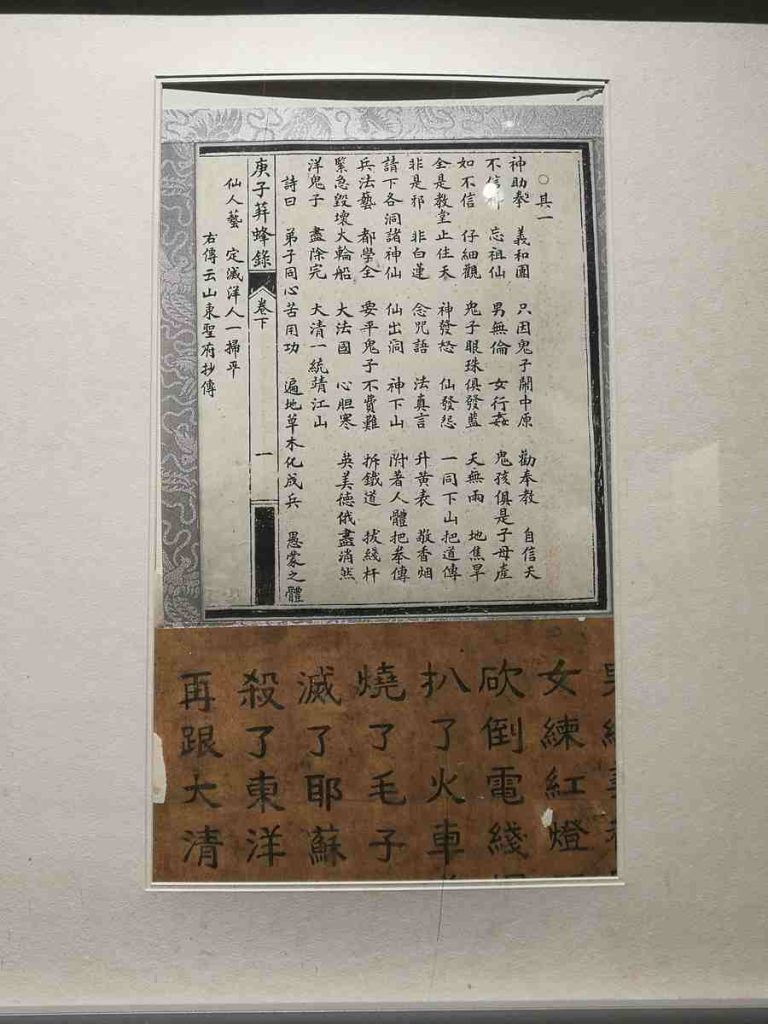 ○其一
神助拳 義和團 只因鬼子鬧中原 勸奉教 自信天
不信神 忘祖仙 男無倫 女行姦 鬼孩俱是子母產
如不信 仔細觀 鬼子眼珠俱發藍 天無雨 地焦旱
全是教堂止住天 神發怒 仙發怨 一同下山把道傳
非是邪 非白蓮 念咒語 法真言 升黃表 敬香烟
請下各洞諸神仙 仙出洞 神下山 附著人體把拳傳
兵法藝 都學全 要平鬼子不費難 拆鐵道 拔綫杆
緊急毀壞大輪船 大法國 心胆寒 英美德俄盡消然
洋鬼子 盡除完 大清一統靖江山
詩曰 弟子同心苦用功 遍地草木化成兵 愚蒙之體
庚子荓蜂錄 卷下 一
仙人藝 定滅洋人一掃平
右傳云山東聖府抄傳
女練紅燈
砍倒電綫
扒了火車
燒了毛子
滅了耶蘇
殺了東洋
再跟大清